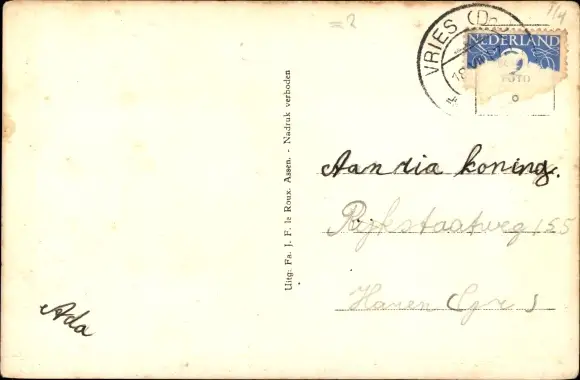 = 2
7/4
VRIES (D
18
NEDERLAND
2
FOTO
Uitg: Fa. J. F. le Roux. Assen. - Nadruk verboden
Aan ria koning.
Rijkstaatweg 155
Haren (Gr)
Ada